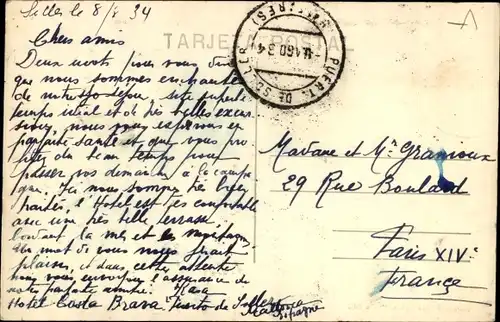 Soller le 8/8 34
TARJETA POSTAL
PUERTO DE SOLLER
(BALEARES)
AGO 34
Chers amis
Deux mots pour vous dire
que nous sommes enchantés
de notre séjour, site superbe
temps idéal et de très belles excur
sions, nous vous espérons en
parfaite santé et que vous pro
fitez du beau temps pour
passer vos dimanches à la campa
gne. Ici nous sommes très bien
traités, l'Hôtel est très confortable
avec une très belle terrasse
la mer et les montagnes
Un mot de vous nous ferait
plaisir, et dans cette attente
nous vous envoyons l'assurance de
notre parfaite amitié.
Hotel Costa Brava Puerto de Soller
Mallorca
Espagne
Madame et Mr
29 Rue Boulard
Paris XIVe
France